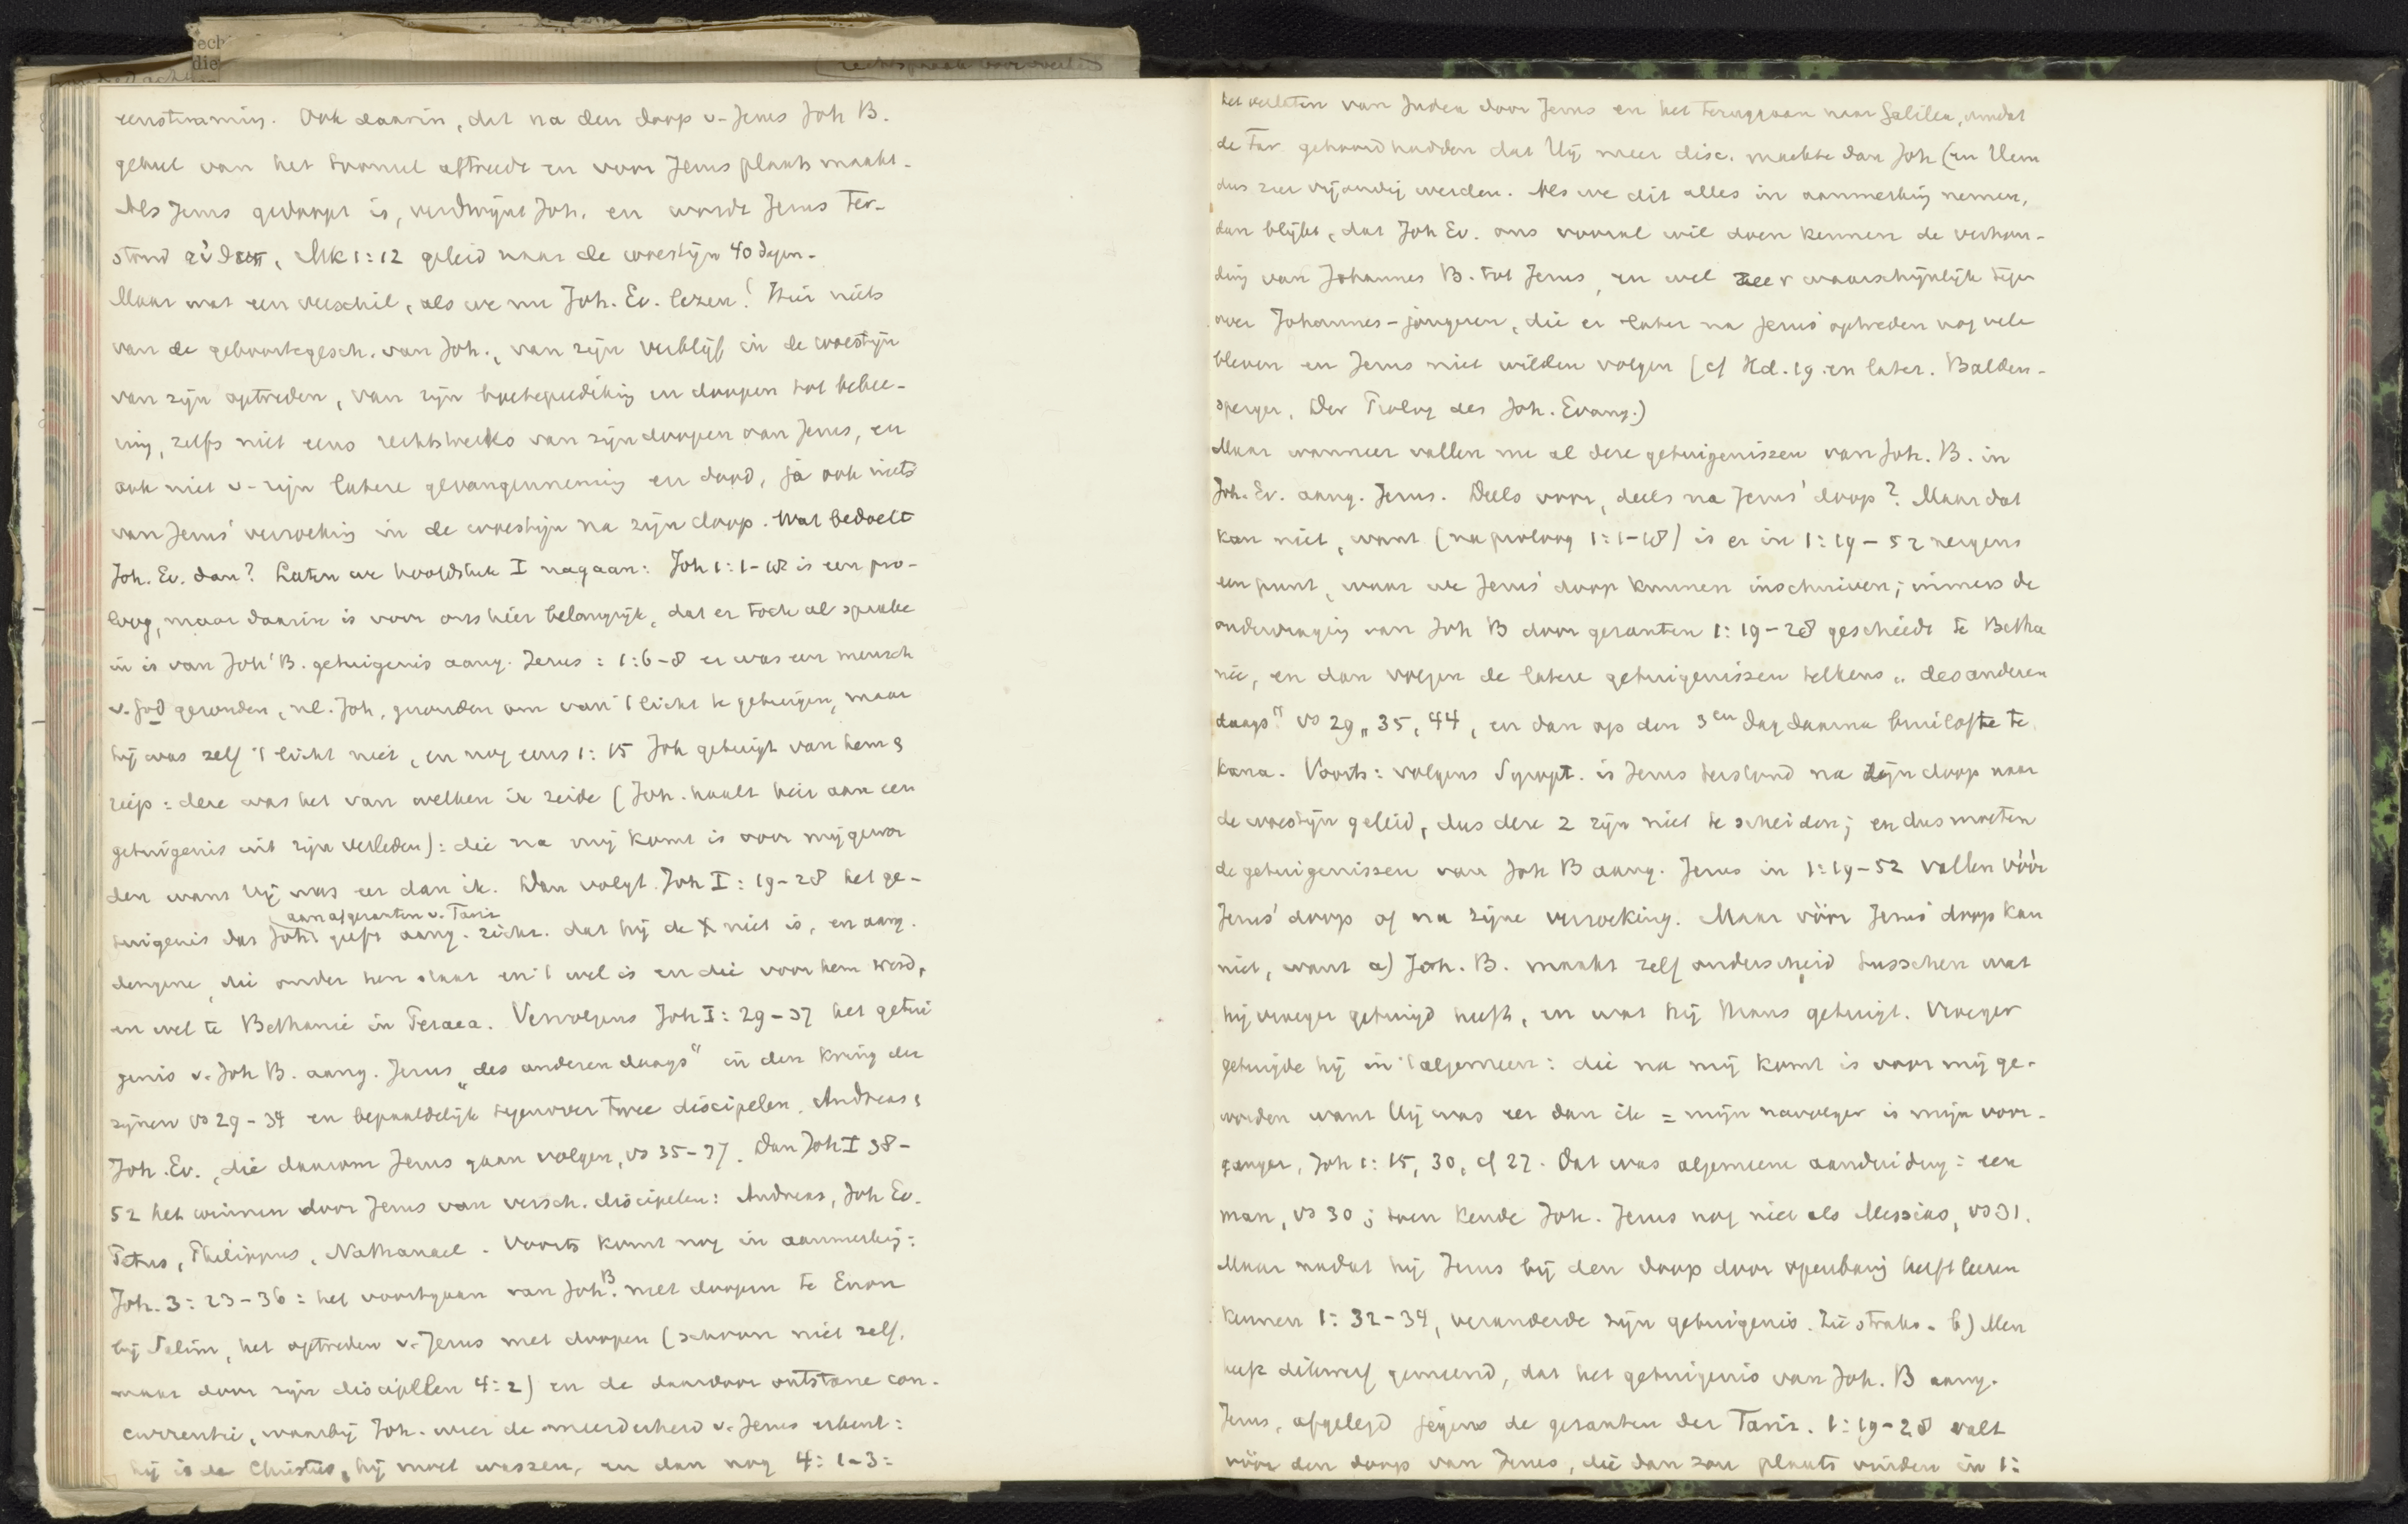 eenstemmig. Ook daarin, dat na den doop v. Jezus Joh B.
geheel van het tooneel aftreedt en voor Jezus plaats maakt.
Als Jezus gedoopt is, verdwijnt Joh. en wordt Jezus ter-
stond εὐθυς, Mk 1:12 geleid naar de woestijn 40 dagen.
Maar wat een verschil, als we nu Joh. Ev. lezen! Hier niets
van de geboortegesch. van Joh., van zijn verblijf in de woestijn
van zijn optreden, van zijn boeteprediking en doopen tot bekee-
ring, zelfs niet eens rechtstreeks van zijn doopen van Jezus, en
ook niet v. zijn latere gevangenneming en dood, ja ook niets
van Jezus' verzoeking in de woestijn na zijn doop. Wat bedoelt
Joh. Ev. dan? Laten we hoofdstuk I nagaan: Joh 1:1-18 is een pro-
loog, maar daarin is voor ons hier belangrijk, dat er toch al sprake
in is van Joh' B. getuigenis aang. Jezus: 1:6-8 er was een mensch
v. God gezonden, nl. Joh, gezonden om van 't licht te getuigen, maar
hij was zelf 't licht niet, en nog eens 1:15 Joh getuigt van hem &
riep: deze was het van welken ik zeide (Joh. haalt hier aan een
getuigenis uit zijn verleden): die na mij komt is voor mij gewor
den want Hij was eer dan ik. Dan volgt Joh I: 19-28 het ge-
aan afgezanten v. Fariz
tuigenis dat Joh geeft aang. zichz. dat hij de X niet is, en aang.
dengene, die onder hen staat en 't wel is en die voor hem werd,
en wel te Bethanië in Peraea. Vervolgens Joh I: 29-37 het getui
genis v. Joh B. aang. Jezus „des anderen daags" in den kring der
zijnen vs 29-34 en bepaaldelijk tegenover twee discipelen, Andreas &
Joh. Ev., die daarom Jezus gaan volgen, vs 35-37. Dan Joh I 38-
52 het winnen door Jezus van versch. discipelen: Andreas, Joh Ev.
Petrus, Philippus, Nathanael. Voorts komt nog in aanmerking:
Joh. 3: 23-36: het voortgaan van Joh B. met doopen te Enon
bij Salim, het optreden v. Jezus met doopen (schoon niet zelf,
maar door zijn discipelen 4:2) en de daardoor ontstane con-
currentie, waarbij Joh. weer de meerderheid v. Jezus erkent:
hij is de Christus, hij moet wassen, en dan nog 4: 1-3:
het verlaten van Judea door Jezus en het teruggaan naar Galilea, omdat
de Far. gehoord hadden dat Hij meer disc. maakte dan Joh (en Hem
dus zeer vijandig werden. Als we dit alles in aanmerking nemen,
dan blijkt, dat Joh Ev. ons vooral wil doen kennen de verhou-
ding van Johannes B. tot Jezus, en wel zeer waarschijnlijk tegen
over Johannes-jongeren, die er later na Jezus' optreden nog vele
bleven en Jezus niet wilden volgen [cf Hd. 19 en later. Balden-
sperger, Der Prolog des Joh. Evang.)
Maar wanneer vallen nu al deze getuigenissen van Joh. B. in
Joh. Ev. aang. Jezus. Deels voor, deels na Jezus' doop? Maar dat
kan niet, want (na proloog 1:1-18) is er in 1:19-52 nergens
een punt, waar we Jezus' doop kunnen inschuiven; immers de
ondervraging van Joh B door gezanten 1:19-28 geschiedt te Betha
nië, en dan volgen de latere getuigenissen telkens „des anderen
daags" vs 29, 35, 44, en dan op den 3en dag daarna bruiloft te
Kana. Voorts: volgens Synopt. is Jezus terstond na zijn doop naar
de woestijn geleid, dus deze 2 zijn niet te scheiden; en dus moeten
de getuigenissen van Joh B aang. Jezus in 1:19-52 vallen vóór
Jezus' doop of na zijne verzoeking. Maar vóór Jezus' doop kan
niet, want a) Joh. B. maakt zelf onderscheid tusschen wat
hij vroeger getuigd heeft, en wat hij thans getuigt. Vroeger
getuigde hij in 't algemeen: die na mij komt is voor mij ge-
worden want Hij was eer dan ik = mijn navolger is mijn voor-
ganger, Joh 1:15, 30, cf 27. Dat was algemeene aanduiding: een
man, vs 30; toen kende Joh. Jezus nog niet als Messias, vs 31.
Maar nadat hij Jezus bij den doop door openbaring heeft leeren
kennen 1:32-34, veranderde zijn getuigenis. Zie straks. b) Men
heeft dikwerf gemeend, dat het getuigenis van Joh. B aang.
Jezus, afgelegd jegens de gezanten der Fariz. 1:19-28 valt
vóór den doop van Jezus, die dan zou plaats vinden in 1: